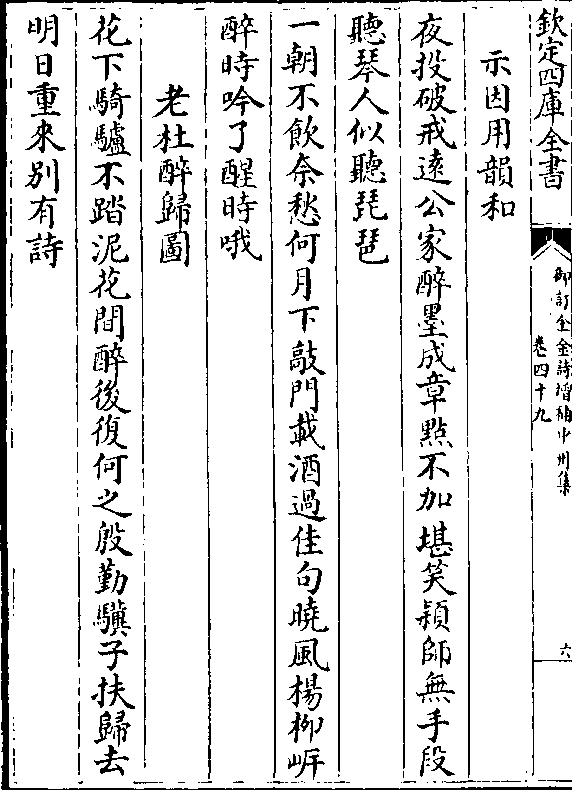 欽定四庫全書
御訂全金詩增補中州集
卷四十九
六
示因用韻和
夜投破戒遠公家醉墨成章點不加堪笑穎師無手段
聽琴人似聽琵琶
一朝不飲奈愁何月下敲門載酒過佳句曉風楊柳岍
醉時吟了醒時哦
老杜醉歸圖
花下騎驢不踏泥花間醉後復何之殷勤驥子扶歸去
明日重來別有詩